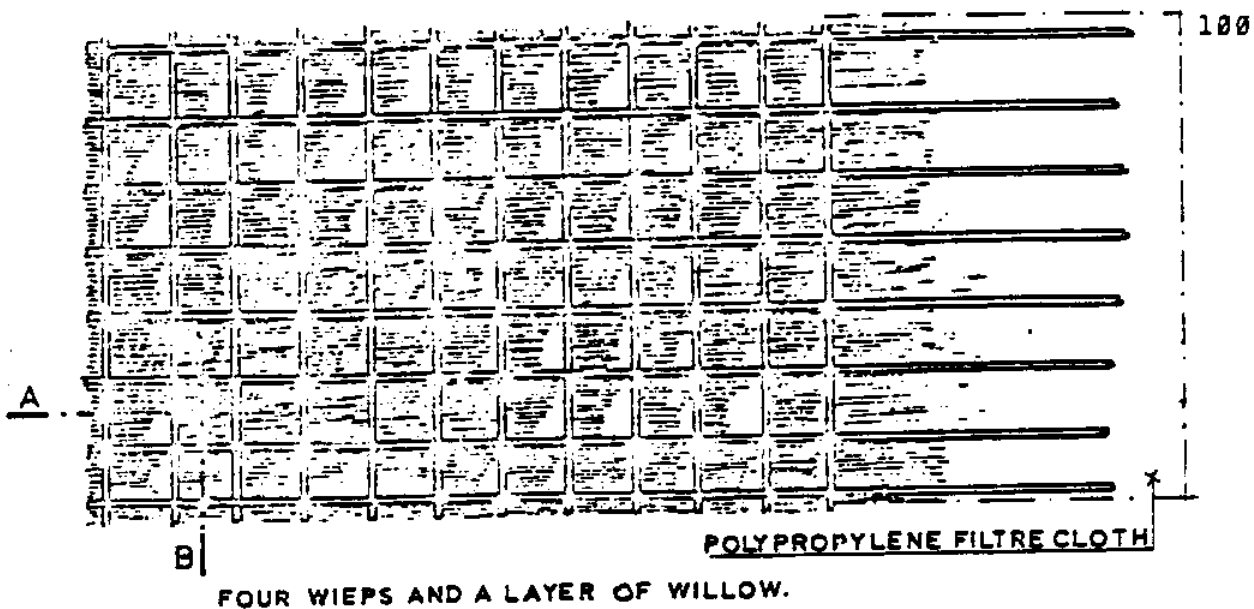 100
A
B
POLYPROPYLENE FILTRE CLOTH
FOUR WIEPS AND A LAYER OF WILLOW.